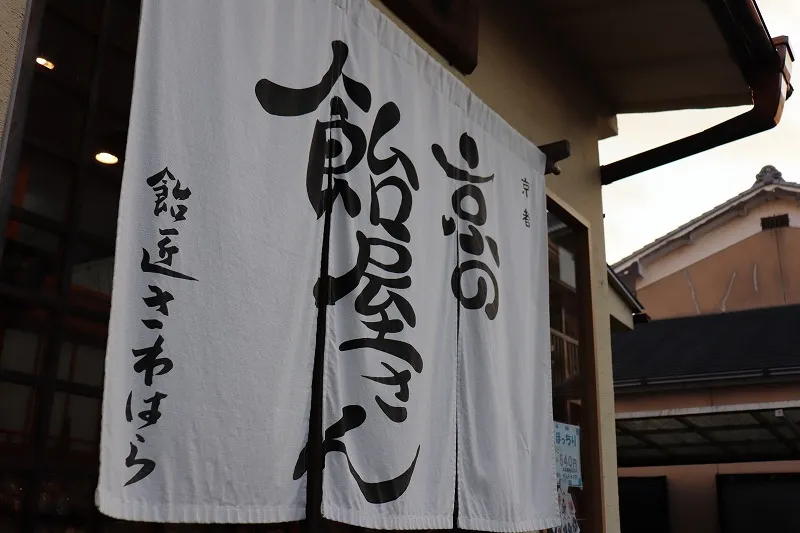 京都
京の
飴屋さん
飴匠さわはら
ぽっちり
540円